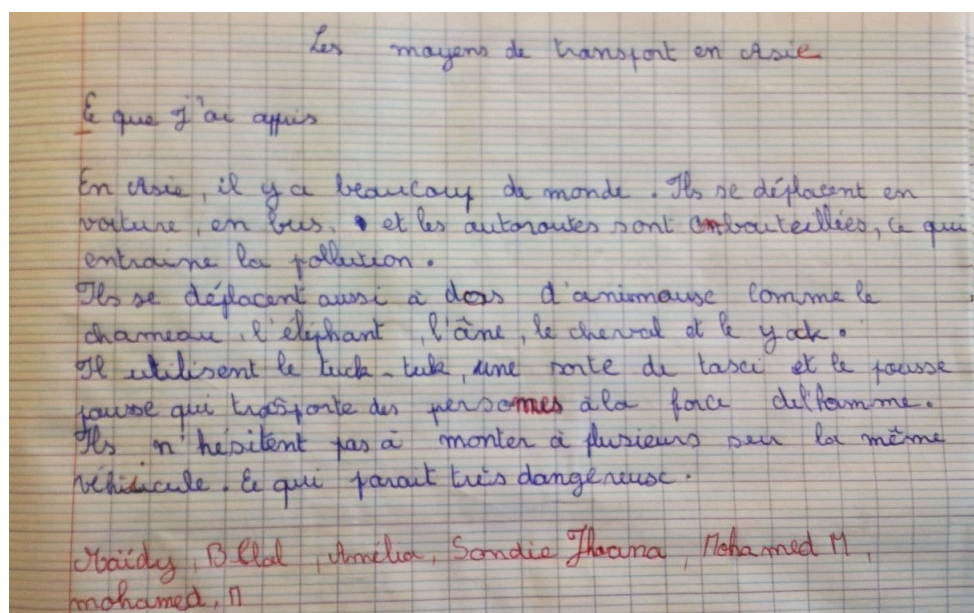 Les moyens de transport en Asie
Ce que j'ai appris
En Asie, il y a beaucoup de monde. Ils se déplacent en
voiture, en bus, et les autoroutes sont embouteillées, ce qui
entraine la pollution.
Ils se déplacent aussi à dos d'animause comme le
chameau, l'éléphant, l'âne, le cheval et le yack.
Il utilisent le tuck-tuk, une sorte de taxi et le pousse
pousse qui trasporte des personnes à la force de l'homme.
Ils n'hésitent pas à monter à plusieurs sur la même
véhicule. Ce qui parait très dangereuse.
Amélia, Mohamed M,
mohamed, M